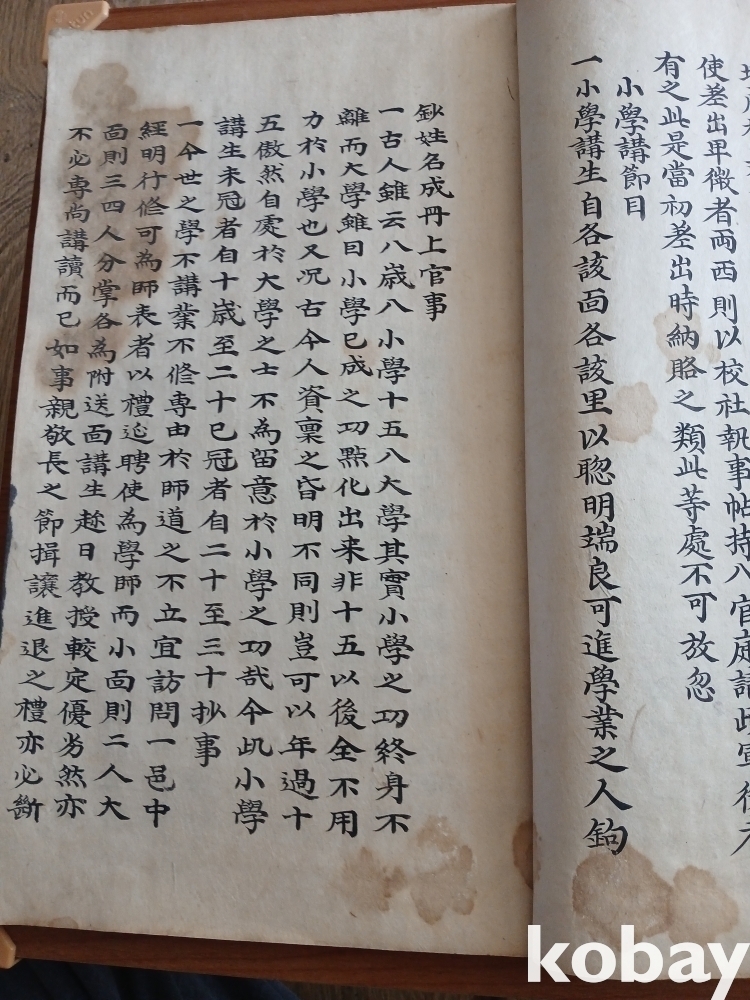 使差出卑微者両西則以校社執事帖持入官庭請
有之此是當初差出時納賂之類此等處不可放忽
小學講節目
一小學講生自各該面各該里以聡明端良可進學業之人鈎
鈔姓名成冊上官事
一古人雖云八歳入小學十五入大學其實小學之功終身不
離而大學雖曰小學已成之功點化出来非十五以後全不用
力於小學也又况古今人資稟之昏明不同則豈可以年過十
五傲然自處於大學之士不為留意於小學之功哉今此小學
講生未冠者自十歳至二十已冠者自二十至三十抄事
一今世之學不講業不修專由於師道之不立宜訪問一邑中
經明行修可為師表者以禮迎聘使為學師而小面則二人大
面則三四人分掌各為附送面講生趂日教授較定優劣然亦
不必専尚講讀而已如事親敬長之節揖讓進退之禮亦必斷
kobay